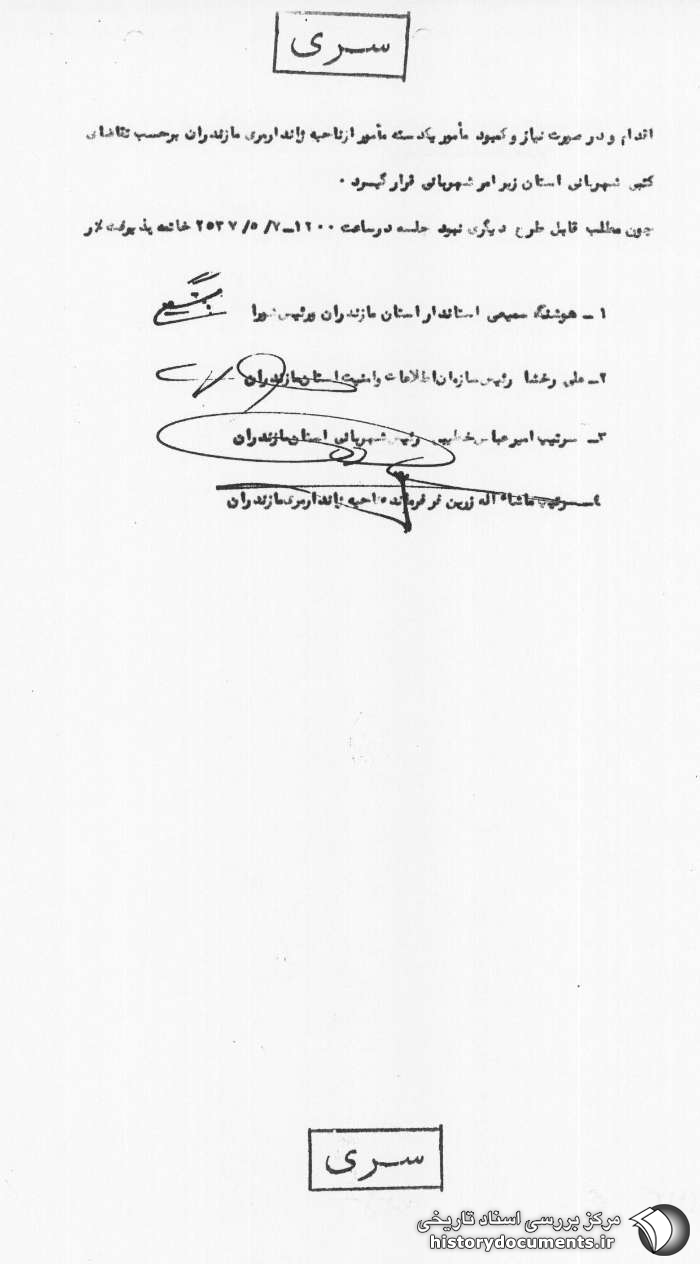 سری
اقدام و در صورت نیاز و کمبود مأمور یکدسته مأمور از ناحیه ژاندارمری مازندران برحسب تقاضای
کتبی شهربانی استان زیر امر شهربانی قرار گیرد .
چون مطلب قابل طرح دیگری نبود جلسه در ساعت ۱۲۰۰ــ۷/ ۵/ ۲۵۳۷ خاتمه پذیرفت
۱ ــ هوشنگ سمیعی استاندار استان مازندران ورئیس شورا
۲ــ علی رخشا رئیس سازمان اطلاعات وامنیت استان مازندران
۳ــ سرتیپ امیر عباس خطیبی رئیس شهربانی استان مازندران
۴ــ سرتیپ ماشاء اله زرین فر فرمانده ناحیه ژاندارمری مازندران
سری
مرکز بررسی اسناد تاریخی
historydocuments.ir